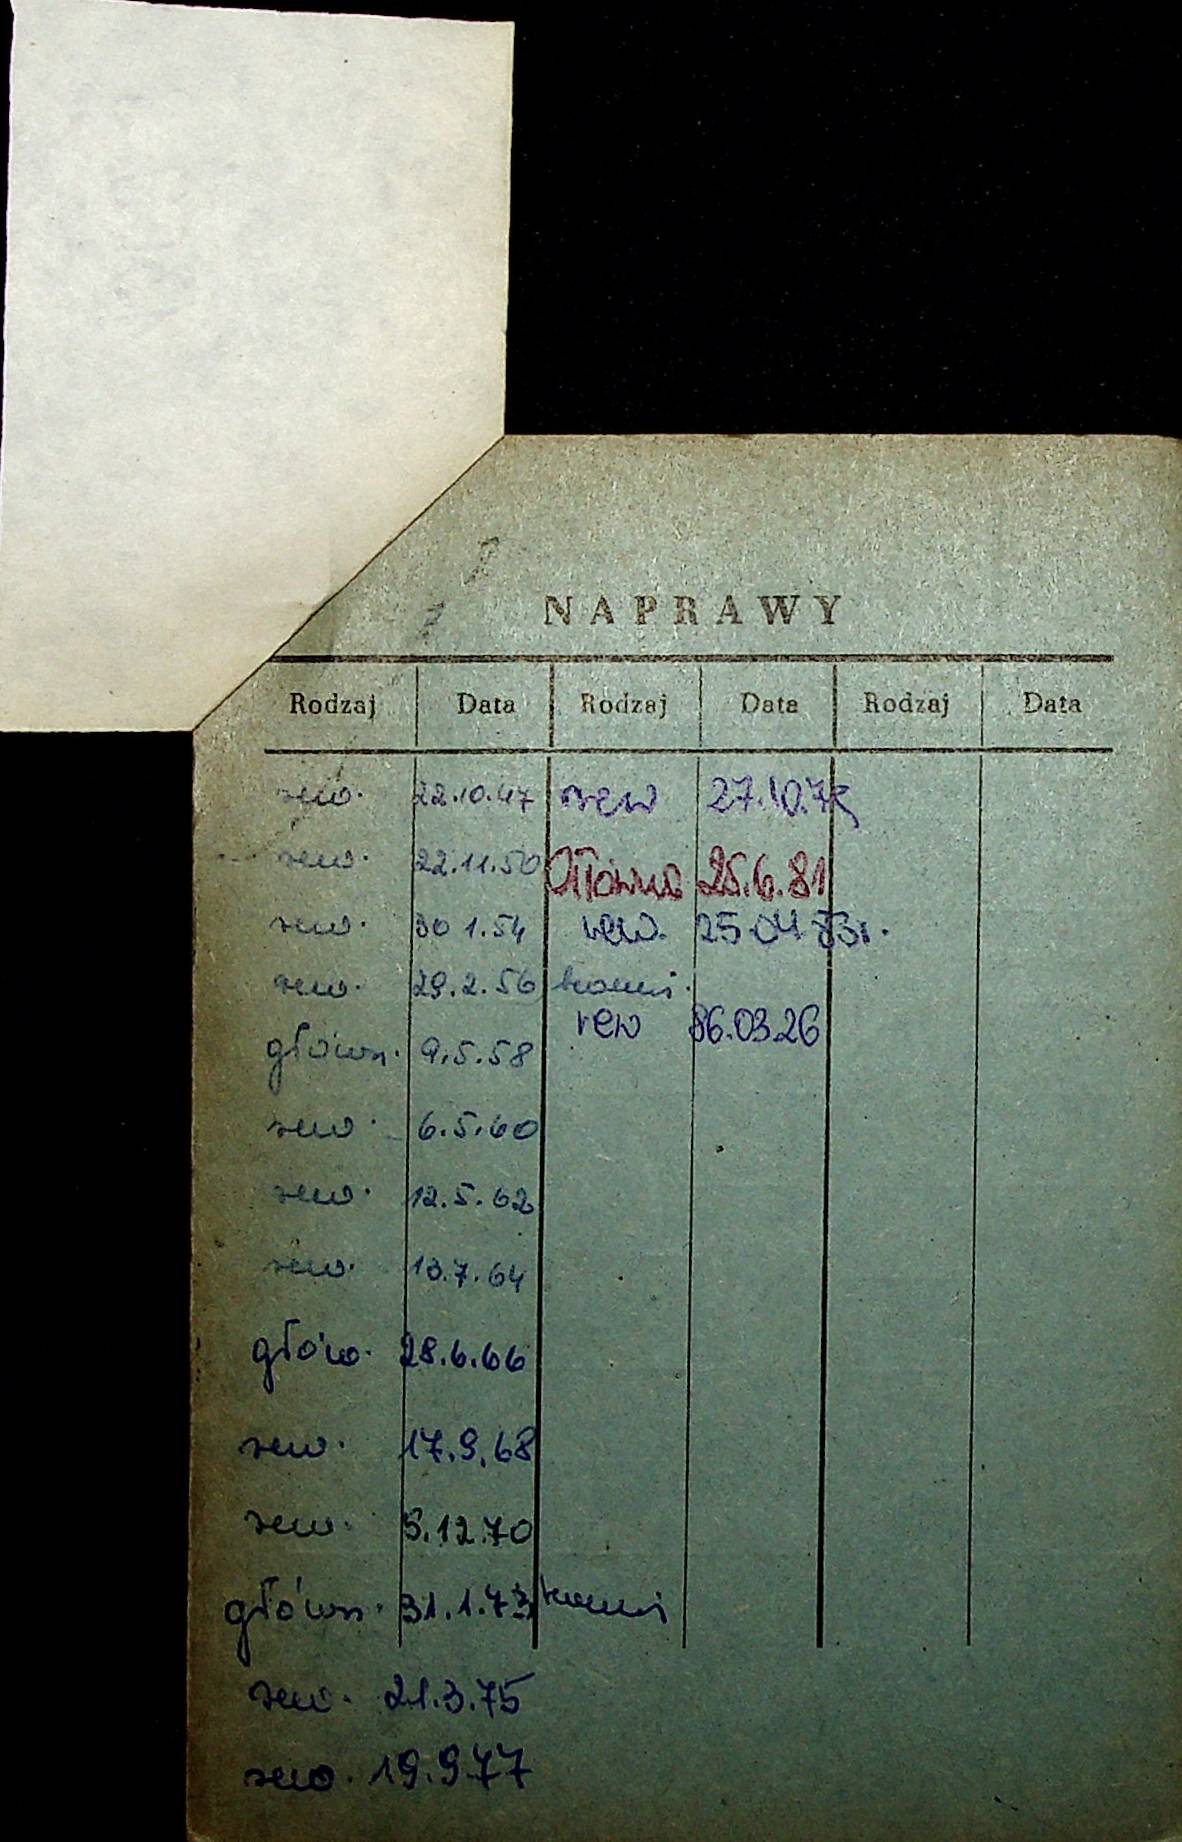 NAPRAWY
Rodzaj Data Rodzaj Data Rodzaj Data
rew. 22.10.47 rew 27.10.79
rew. 22.11.50 Główna 25.6.81
rew. 30 1.54 rew. 25 04 83r.
rew. 29.2.56
rew 86.03.26
główn. 9.5.58
rew. 6.5.60
rew. 12.5.62
rew. 13.7.64
głów. 28.6.66
rew. 17.9.68
rew. 5.12.70
główn. 31.1.73
rew. 21.3.75
rew. 19.9.77